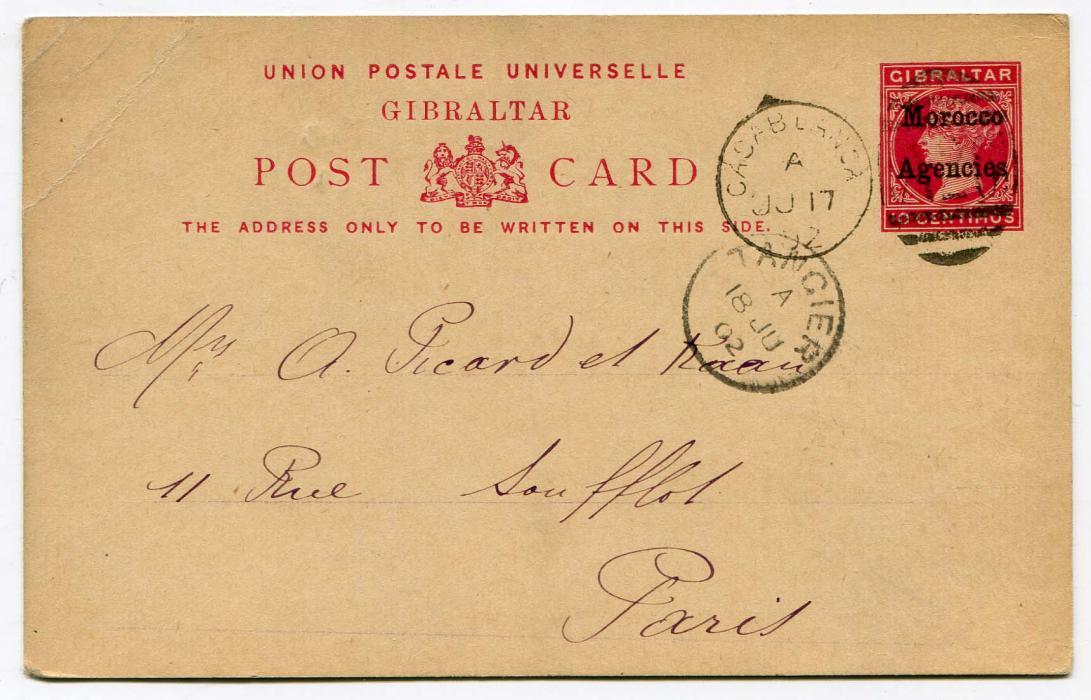 UNION POSTALE UNIVERSELLE
GIBRALTAR
POST CARD
THE ADDRESS ONLY TO BE WRITTEN ON THIS SIDE.
GIBRALTAR
Morocco
Agencies
CASABLANCA
A
JU 17
02
TANGIER
A
18 JU
02
Mrs A. Picard et Kaan
11 Rue Soufflot
Paris